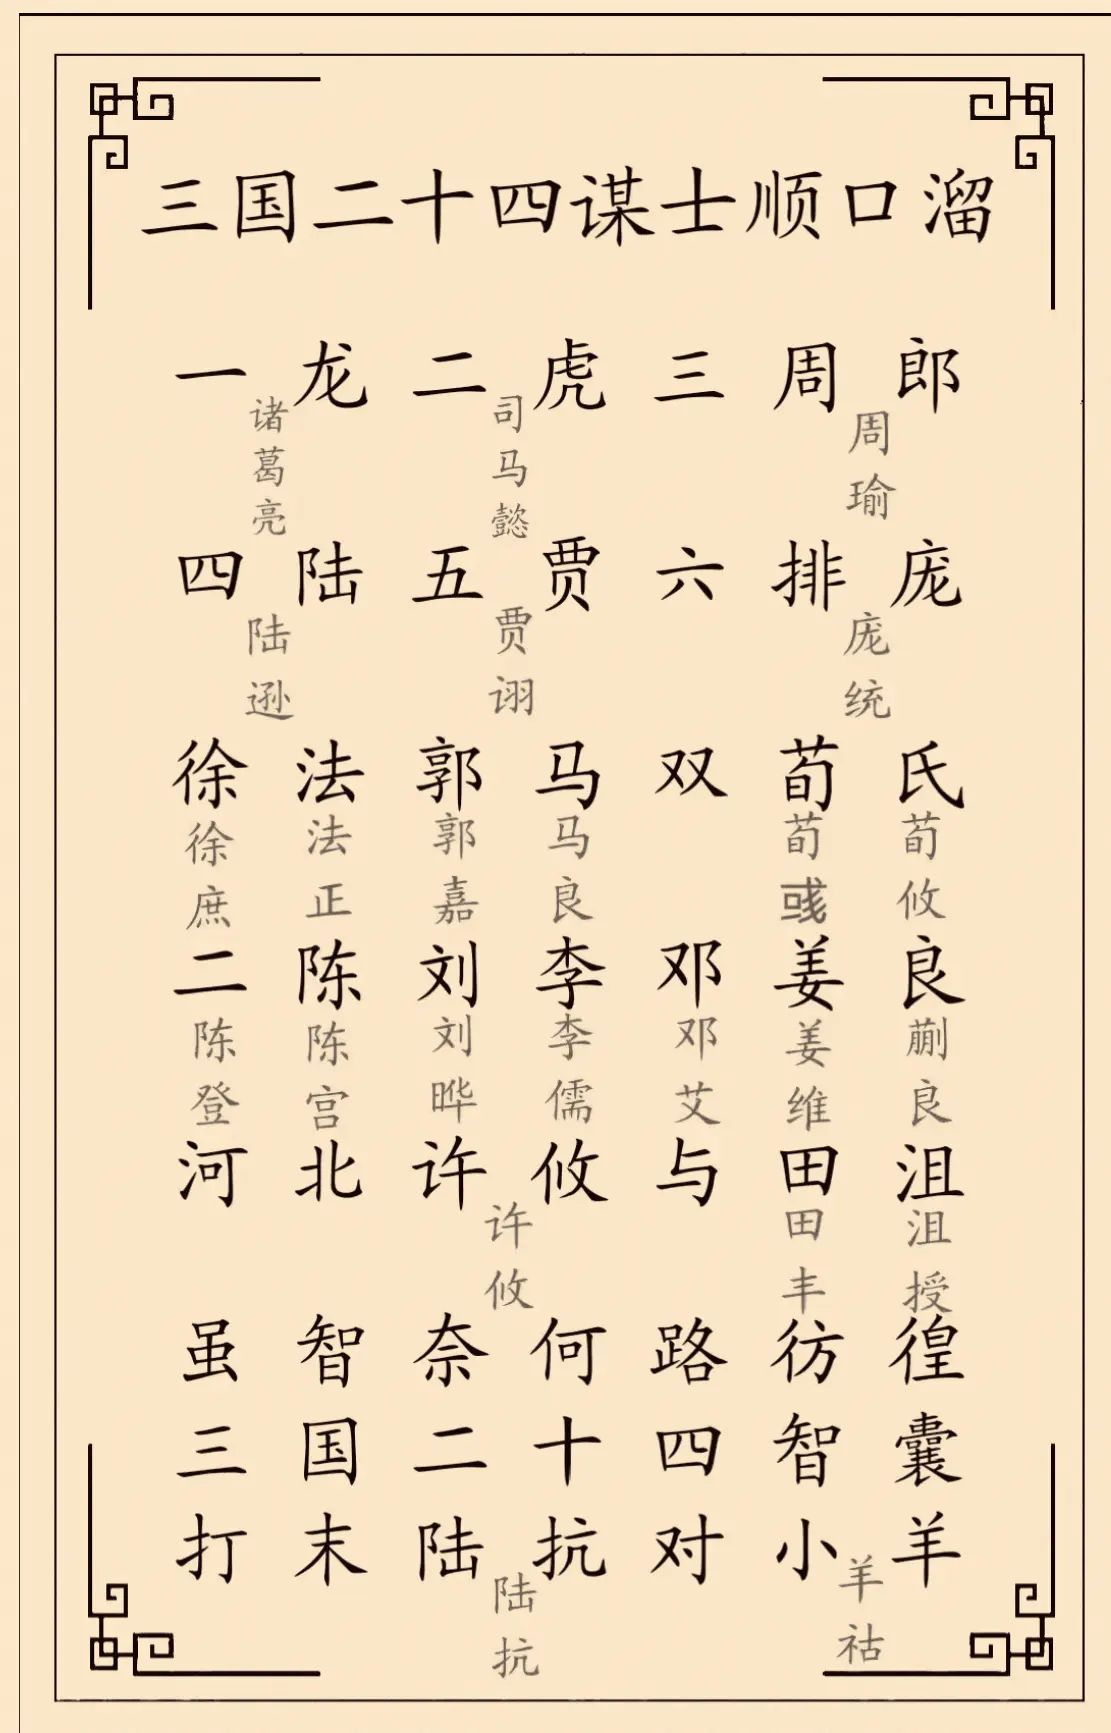 三国二十四谋士顺口溜
一龙二虎三周郎
诸葛亮 司马懿 周瑜
四陆五贾六排庞
陆逊 贾诩 庞统
徐法郭马双荀氏
徐庶 法正 郭嘉 马良 荀彧 荀攸
二陈刘李邓姜良
陈登 陈宫 刘晔 李儒 邓艾 姜维 蒯良
河北许攸与田沮
许攸 田丰 沮授
虽智奈何路彷徨
三国二十四智囊
打末陆抗对小羊
陆抗 羊祜